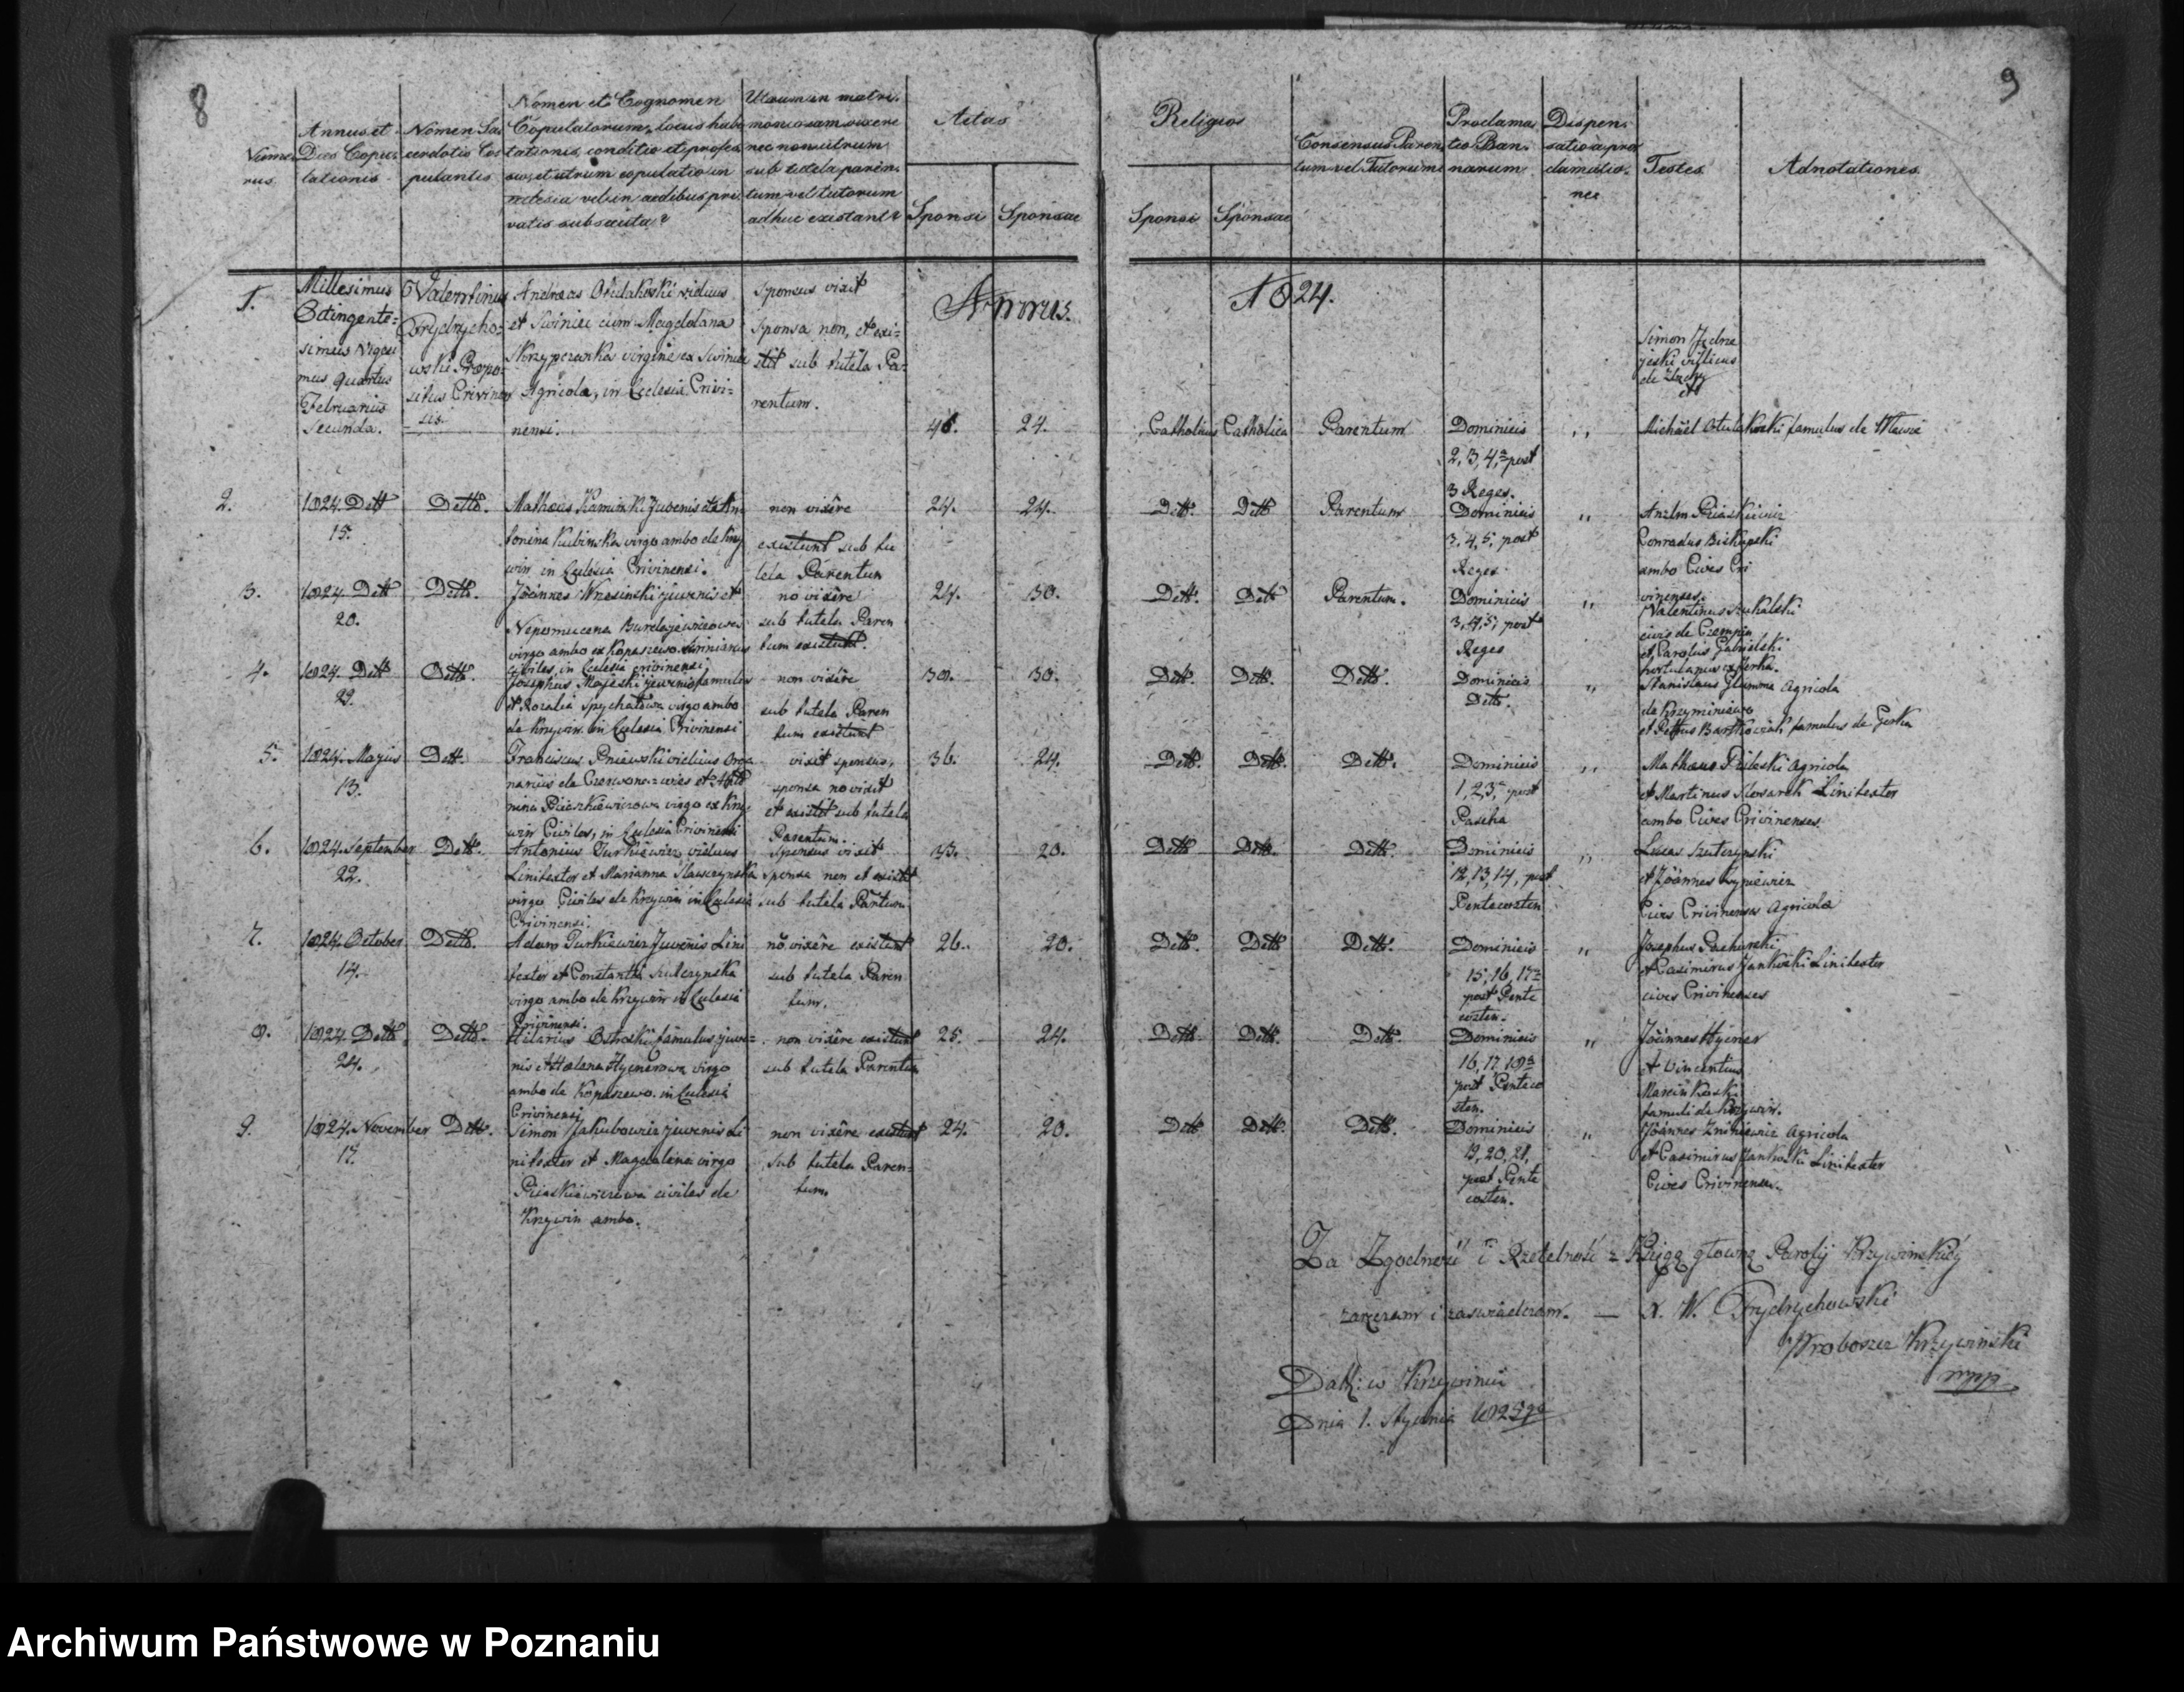 8
9
Numerus
Annus et Dies Copulationis
Nomen Sacerdotis Copulantis
Nomen et Cognomen
Copulatorum, locus habi
tationis, conditio et profes
sio, et utrum copulatio in
ecclesia vel in aedibus pri
vatis subsecuta?
Utrum in matri
monio jam vixere
nec non utrum
sub tutela paren
tum vel tutorum
adhuc existant?
Aetas
Sponsi Sponsae
Religio
Sponsi Sponsae
Consensus Paren
tum vel Tutorum
Proclama
tio Ban
narum
Dispen
satio a pro
clamatio
ne
Testes
Adnotationes
Annus 1824.
1.
Millesimus
Octingente=
simus Viges
mus quartus
Februarius
Secunda.
Valentinus
Frydrycho=
wski Præpo=
situs Crivinen
sis.
Andreas Otulakoski viduus
et Swiniec cum Magdalana
Skrzypczanka virgine ex Swiniec
Agricola, in Eclesia Crivi=
nensi.
Sponsus vixit
Sponsa non, et exi=
stit sub tutela Pa=
rentum.
46. 24.
Catholicus Catholica Parentum
Dominicis
2, 3, 4, post
3 Reges.
Simon Jędrze
jeski villicus
de
et
Michaël Otulakoski famulus de
2.
1824 Dett
15.
Detto.
Matheus Kaminski Juvenis et An
tonina Kubinska virgo ambo de Krzy
win in Eclesia Crivinensi.
non vixêre
existunt sub tu
tela Parentun
24. 24.
Dett. Dett Parentum
Dominicis
3, 4, 5, post
Reges
Anzlm Piaskiewicz
Conradus Biskupski
ambo Cives Cri
vinenses.
3.
1824 Dett
20.
Detto.
Jöannes Wresinski juvenis et
Nepomucena
virgo ambo ex Kopaszewo
civiles, in Eclesia crivinensi,
no vixêre
sub tutela Paren
tum existunt.
24. 30.
Dett. Dett Parentum.
Dominicis
3, 4, 5, post
Reges
Valentinus Szukalski
civis de Czempin
et Carolus Gabrielski
hortulanus ex Jerka.
4.
1824. Dett
29.
Detto.
Josephus Majeski juvenis famulus
et Rozalia Spychałowa virgo ambo
de Krzywin in Eclesia Crivinensi
non vixêre
sub tutela Paren
tum existunt
30. 30.
Dett. Dett. Dett.
Dominicis
Detto.
Stanislaus Glumma Agricola
de Krzyminiewo
et Pettrus Bartkowiak famulus de Gerka
5.
1824. Majus
13.
Dett.
Franciscus Pniewski viduus Orga
narius de Czerwona=wies et
nina Piaszkiewiczowa virgo ex Krzy
win Civiles, in Eclesia Crivinensi
vixit sponsus,
sponsa no vixit
et existit sub tutela
Parentum.
36. 24.
Dett. Dett. Dett.
Dominicis
1, 2, 3, post
Pascha
Mathæus Agricola
et Martinus Slosarek Linitextor
ambo Cives Crivinenses.
6.
1824. September
22.
Dett.
Antonius Turkiewicz viduus
Linitextor et Marianna Slawczynska
virgo Civiles de Krzywin in Eclesia
Crivinensi.
Sponsus vixit
Sponsa non et existit
sub tutela Partum
33. 20.
Dett Dett. Dett.
Dominicis
12, 13, 14, post
Pentecosten
Lucas Szulczynski
et Jöannes Zyniewicz
Cives Crivinenses Agricolæ
7.
1824. October
14.
Detto.
Adam Turkiewicz Juvenis Lini
textor et Constantia Szulczynska
virgo ambo de Krzywin in Eclesia
Crivinensi.
nō vixêre existunt
sub tutela Paren
tum.
26. 20.
Dett. Dett Dett.
Dominicis
15, 16, 17
post Pente
costen.
Josephus Pacharski
et Casimirus Jankoski Linitextor
cives Crivinenses
8.
1824. Dett
24.
Detto.
Hilarius Ostroski famulus juve=
nis et Halena Hyenerowa virgo
ambo de Kopaszewo. in Eclesia
Crivinensi
non vixêre existunt
sub tutela Parentum
25. 24.
Dett. Dett. Dett.
Dominicis
16, 17, 18
post Penteco
sten.
Jöannes Hyener
et Vincentius
Marcinkoski
famuli de Krzywin.
9.
1824. November
17.
Dett.
Simon Jakubowicz juvenis Li
nitextor et Magdalena virgo
Piaskiewiczowa civiles de
Krzywin ambo.
non vixêre existunt
sub tutela Paren=
tum.
24. 20.
Dett Dett. Dett.
Dominicis
19, 20, 21,
post Pente
costen.
Jöannes Zniniewicz Agricola
et Casimirus Jankoski Linitextor
Cives Crivinenses.
Za Zgodność i Rzetelność z Xięgą głowną Parofij Krzywinskiéy
zaręczam i zaswiadczam. — X. W. Frydrychowski
Proboszcz Krzywinski
mpp
Datt: w Krzywiniu
Dnia 1. Stycznia 1825go
Archiwum Państwowe w Poznaniu